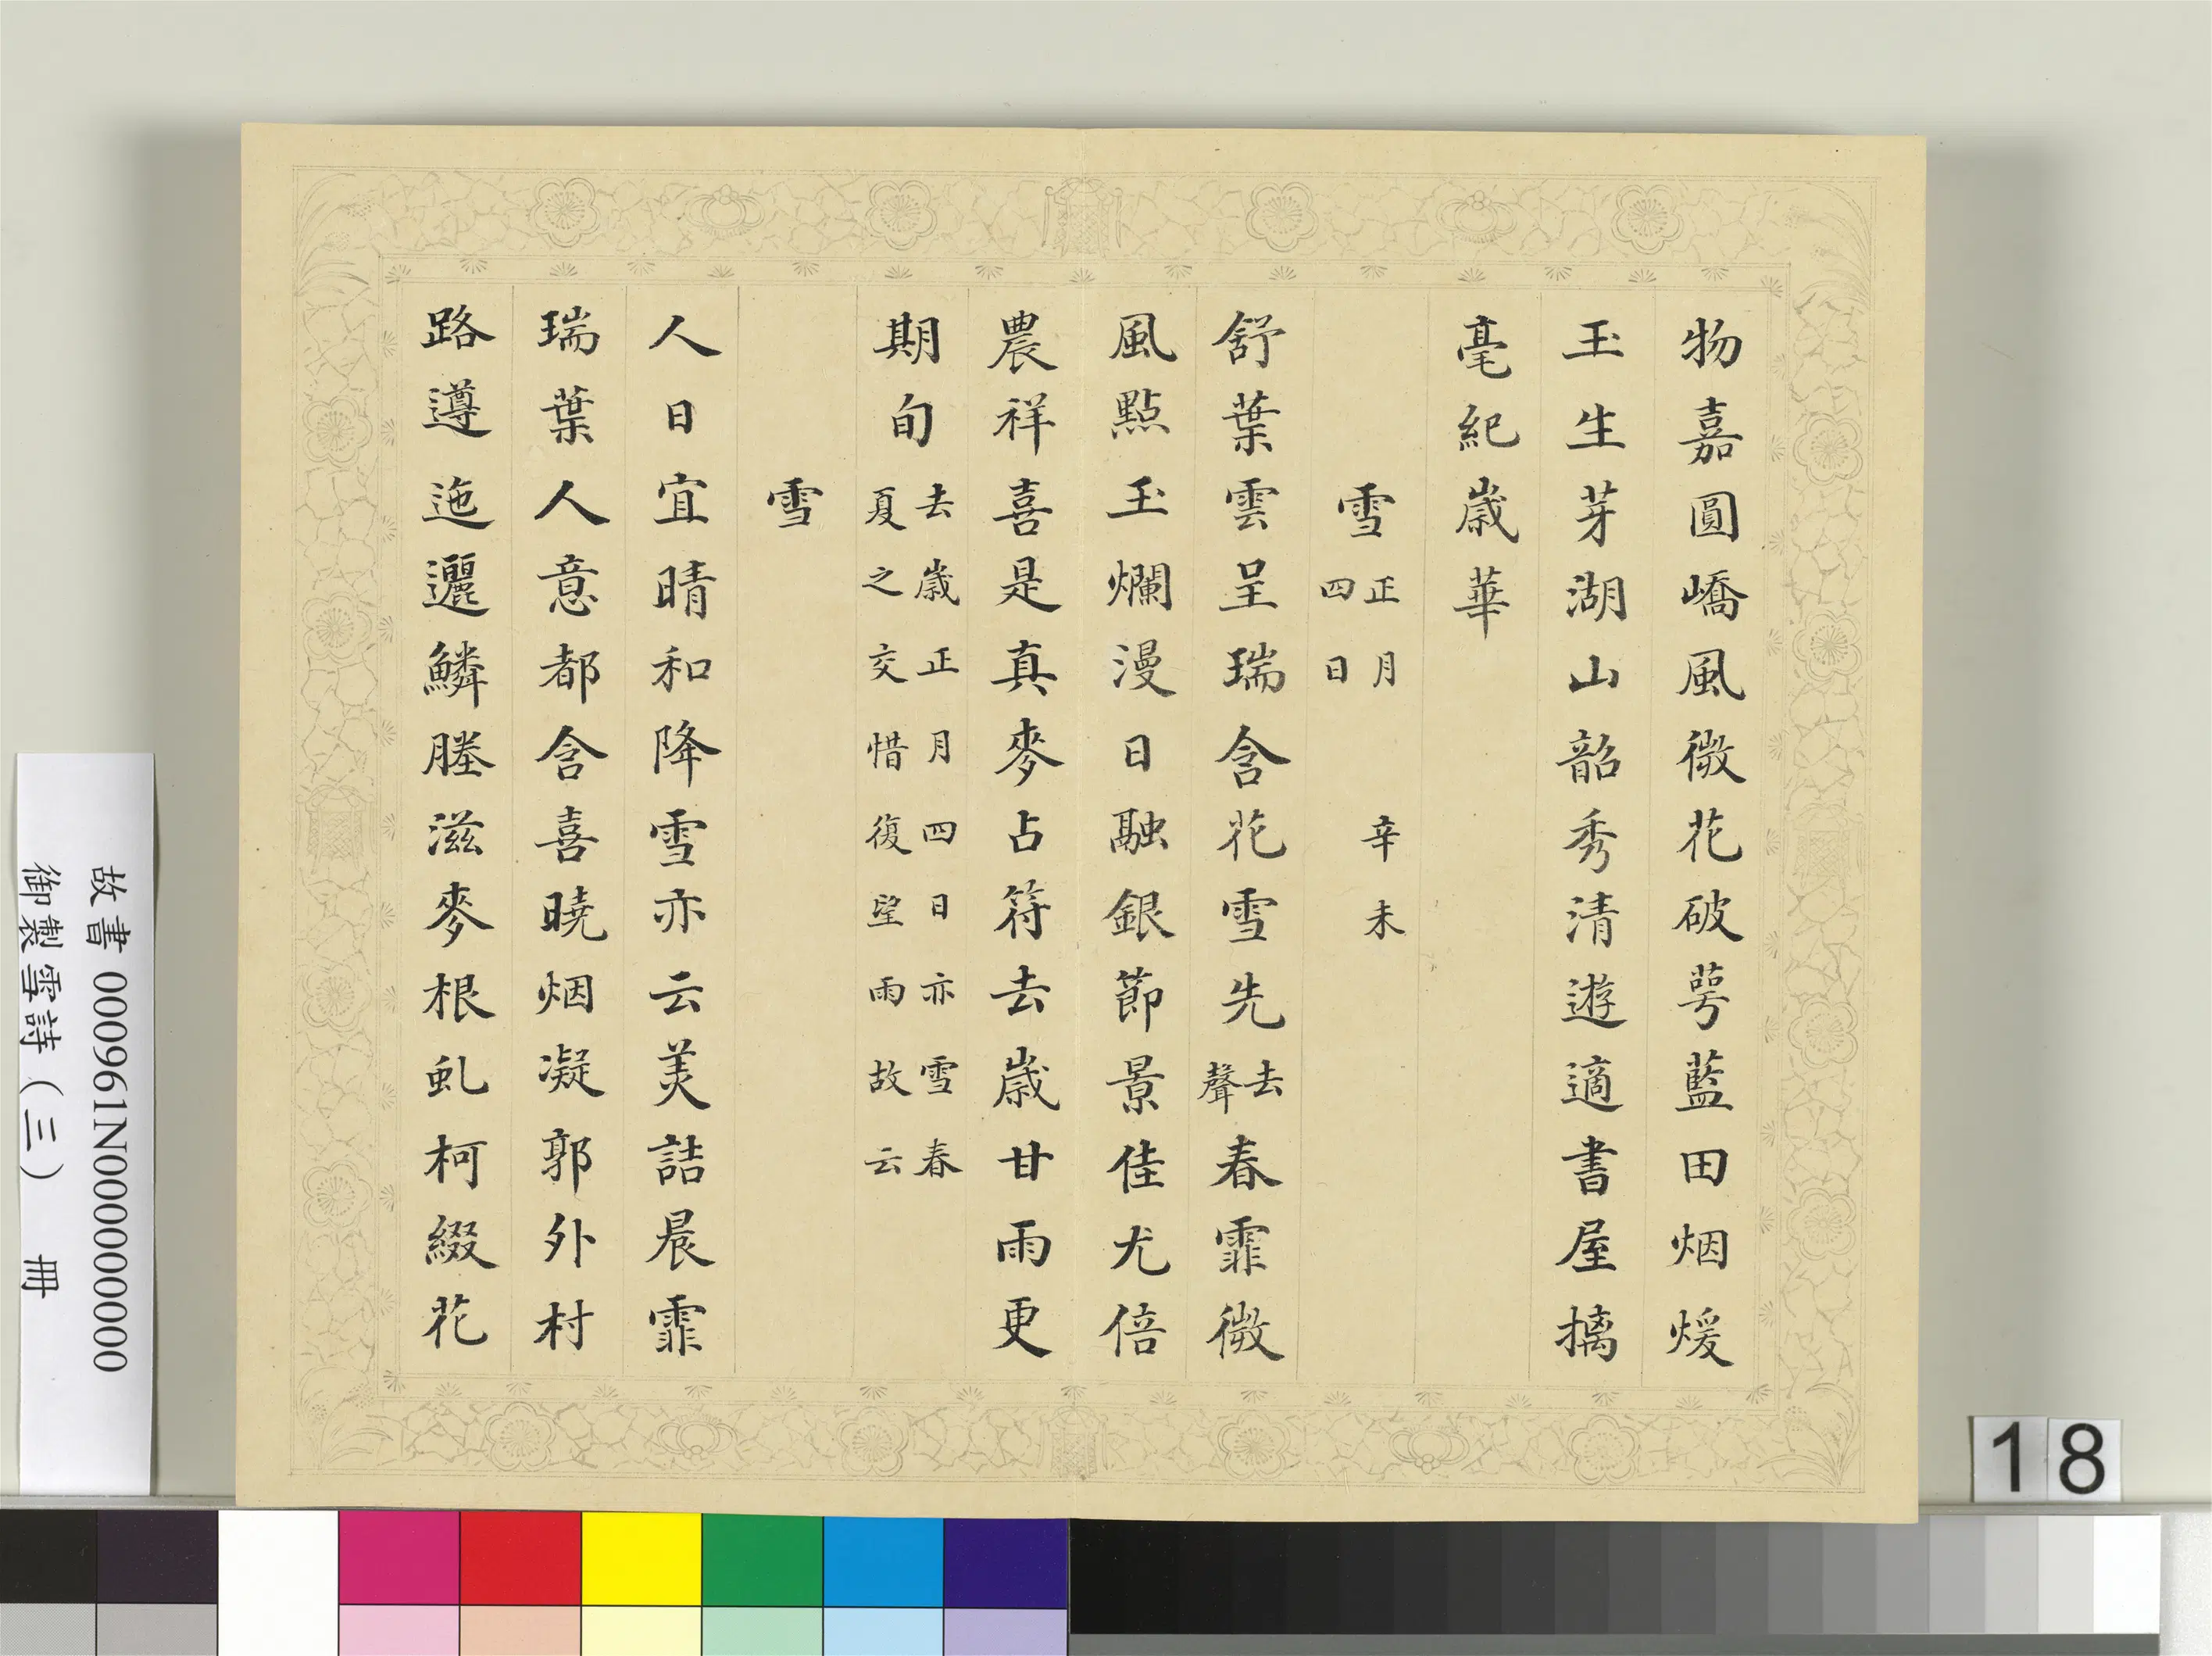 物嘉圓嶠風微花破萼藍田烟煖
玉生芽湖山韶秀清遊適書屋摛
毫紀歲華
雪 正月四日 辛未
舒葉雲呈瑞含花雪先去聲春霏微
風點玉爛漫日融銀節景佳尤倍
農祥喜是真麥占符去歲甘雨更
期旬 去歲正月四日亦雪春夏之交惜復望雨故云
雪
人日宜晴和降雪亦云美詰晨霏
瑞葉人意都含喜曉烟凝郭外村
路遵迤邐鱗塍滋麥根虬柯綴花
故書 000961N000000000
御製雪詩(三) 冊
18